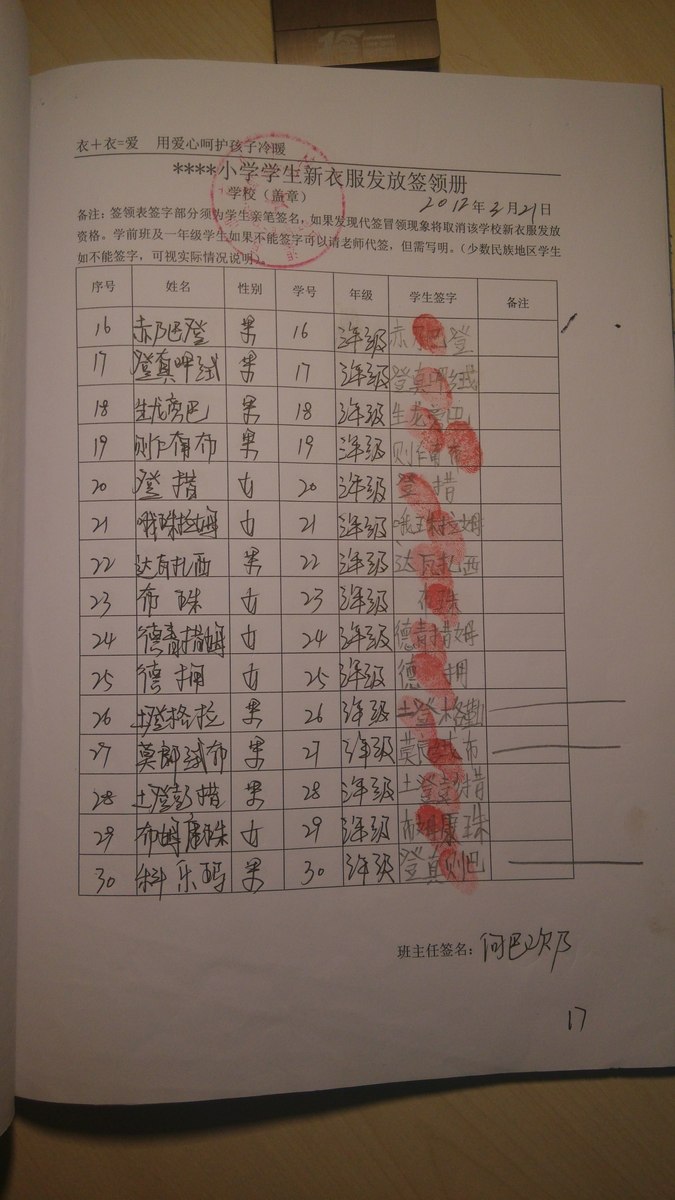 衣+衣=爱 用爱心呵护孩子冷暖
****小学学生新衣服发放签领册
学校（盖章） 2012年3月21日
备注：签领表签字部分须为学生亲笔签名，如果发现代签冒领现象将取消该学校新衣服发放
资格。学前班及一年级学生如果不能签字可以请老师代签，但需写明。（少数民族地区学生
如不能签字，可视实际情况说明）。
序号 姓名 性别 学号 年级 学生签字 备注
16 赤乃巴登 男 16 三年级 赤乃巴登
17 登真呷绒 男 17 三年级 登真呷绒
18 生龙旁巴 男 18 三年级 生龙旁巴
19 则作甫布 男 19 三年级 则作甫布
20 登措 女 20 三年级 登措
21 哦珠拉姆 女 21 三年级 哦珠拉姆
22 达瓦扎西 男 22 三年级 达瓦扎西
23 布珠 女 23 三年级 布珠
24 德青措姆 女 24 三年级 德青措姆
25 德拥 女 25 三年级 德拥
26 土登格拉 男 26 三年级 土登格勒
27 莫郎绒布 男 27 三年级 莫郎绒布
28 土登彭措 男 28 三年级 土登彭措
29 布姆康珠 女 29 三年级 布姆康珠
30 科乐玛 男 30 三年级 登真则巴
班主任签名：何巴次乃
17